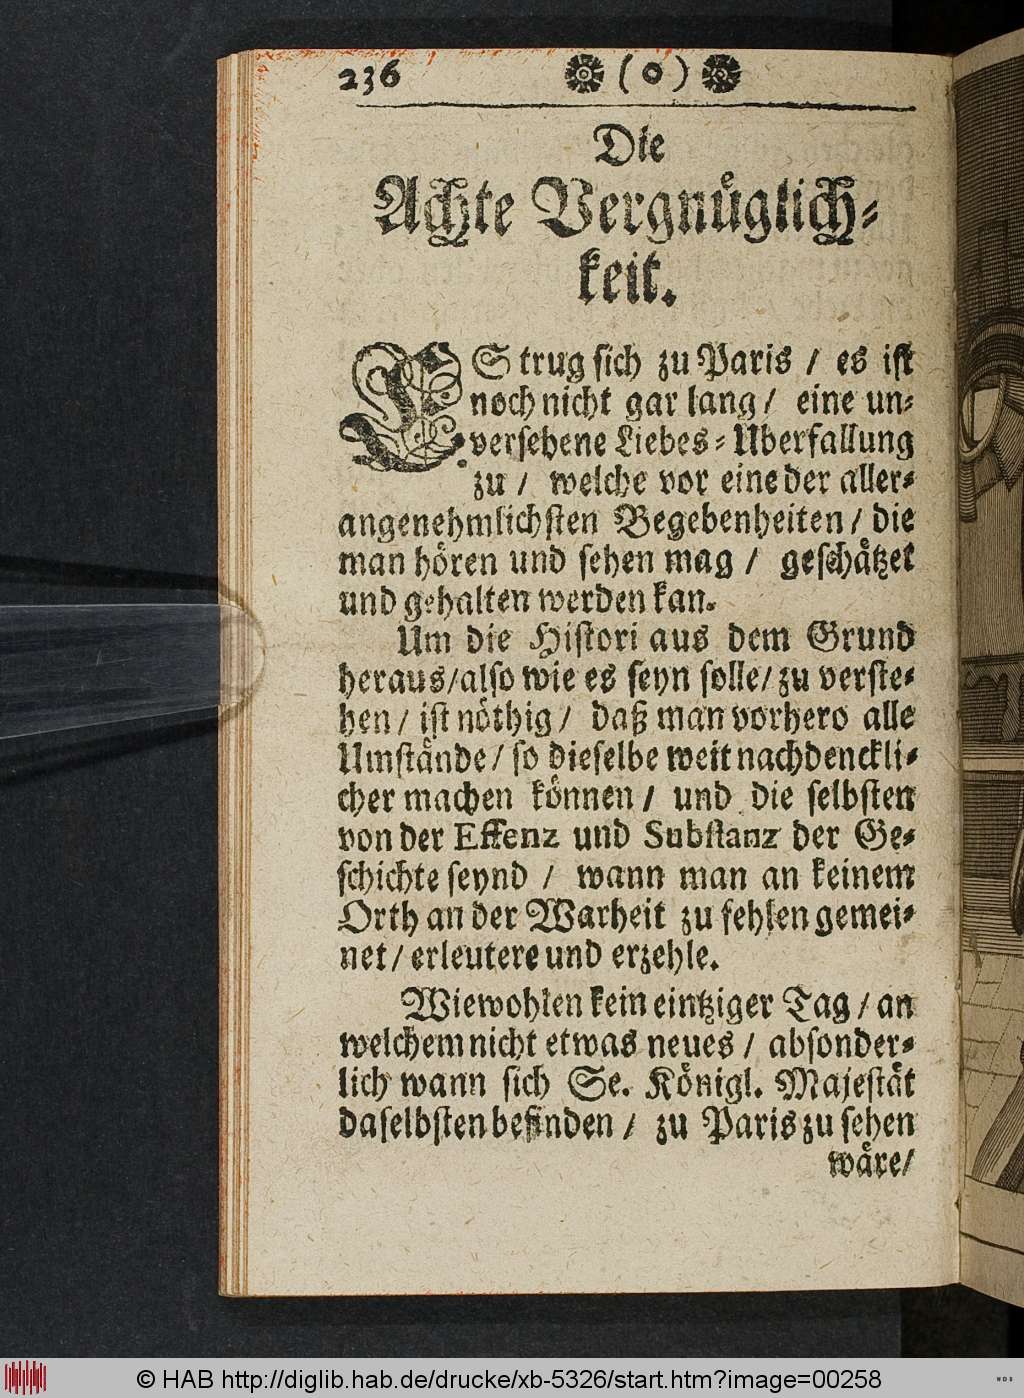 236 ❁ ( o ) ❁
Die
Achte Vergnuͤglich-
keit.
ES trug sich zu Paris / es ist
noch nicht gar lang / eine un-
versehene Liebes-Uberfallung
zu / welche vor eine der aller-
angenehmlichsten Begebenheiten / die
man hören und sehen mag / geschaͤtzet
und gehalten werden kan.
Um die Histori aus dem Grund
heraus / also wie es seyn solle / zu verste-
hen / ist nöthig / daß man vorhero alle
Umstaͤnde / so dieselbe weit nachdenckli-
cher machen können / und die selbsten
von der Essenz und Substanz der Ge-
schichte seynd / wann man an keinem
Orth an der Warheit zu fehlen gemei-
net / erleutere und erzehle.
Wiewohlen kein eintziger Tag / an
welchem nicht etwas neues / absonder-
lich wann sich Se. Königl. Majestaͤt
daselbsten befinden / zu Paris zu sehen
waͤre /
© HAB http://diglib.hab.de/drucke/xb-5326/start.htm?image=00258
WDB